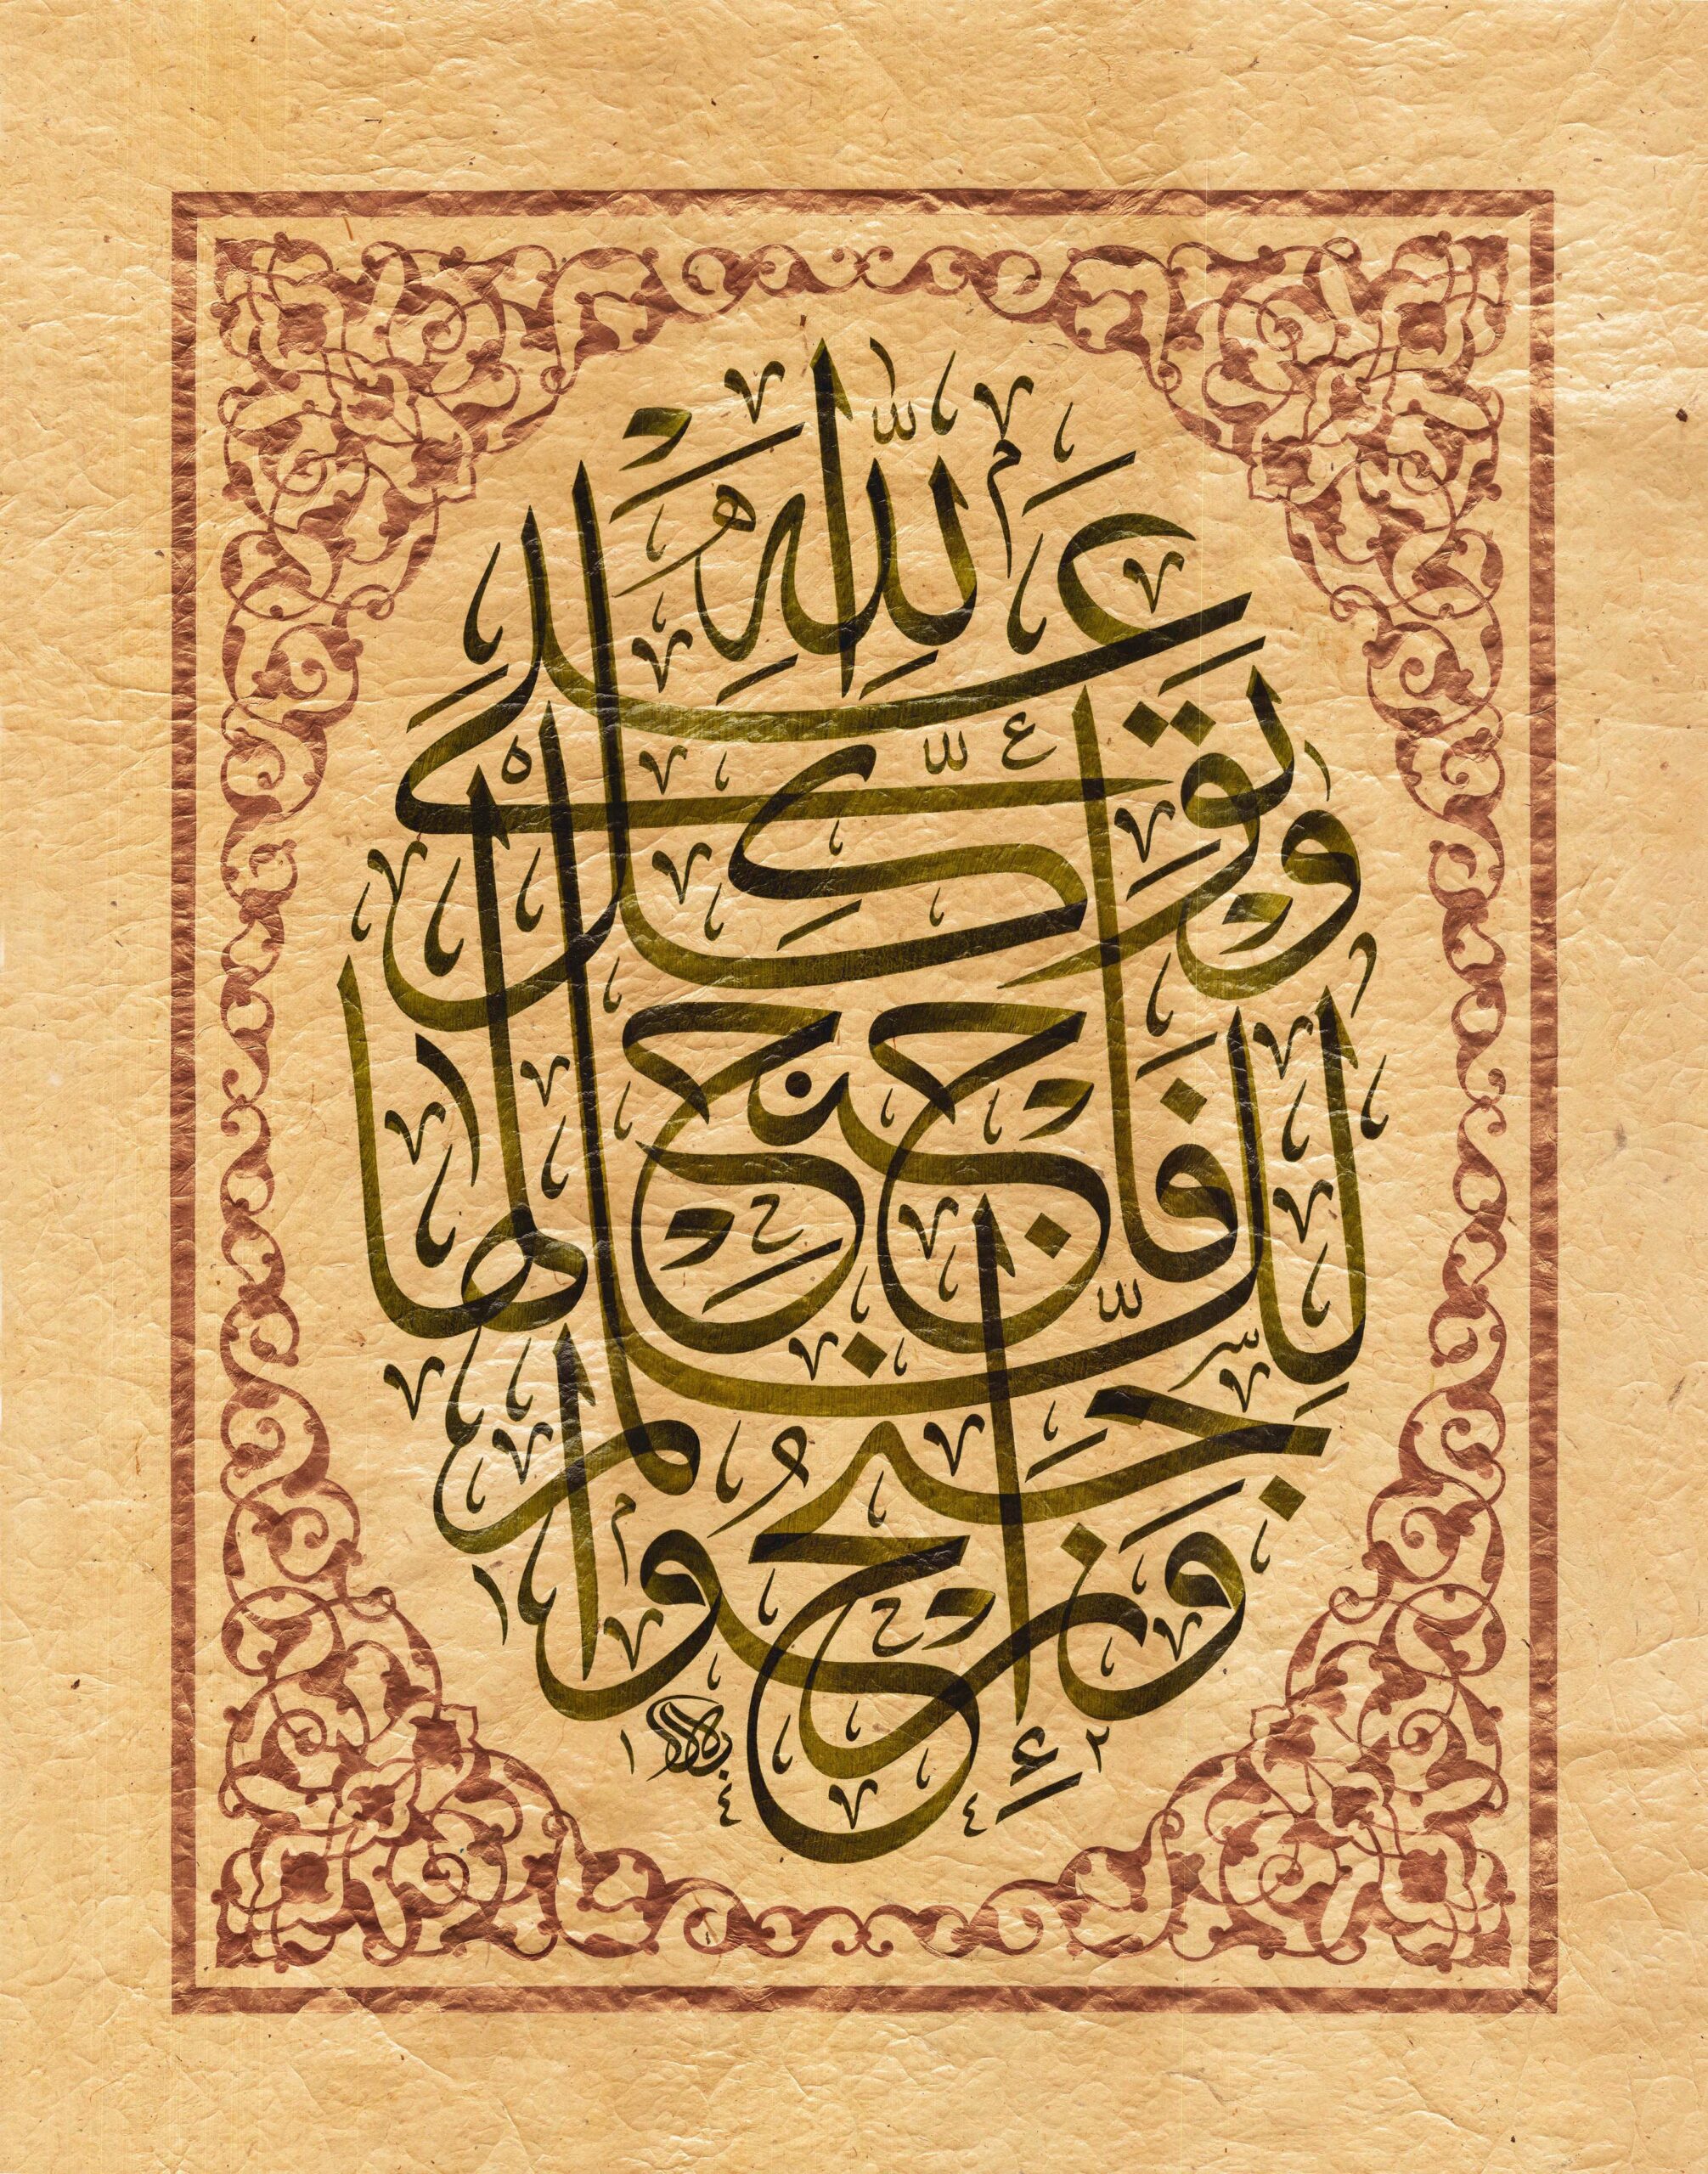 وَإِن جَنَحُوا لِلسَّلْمِ فَاجْنَحْ لَهَا وَتَوَكَّلْ عَلَى اللَّهِ